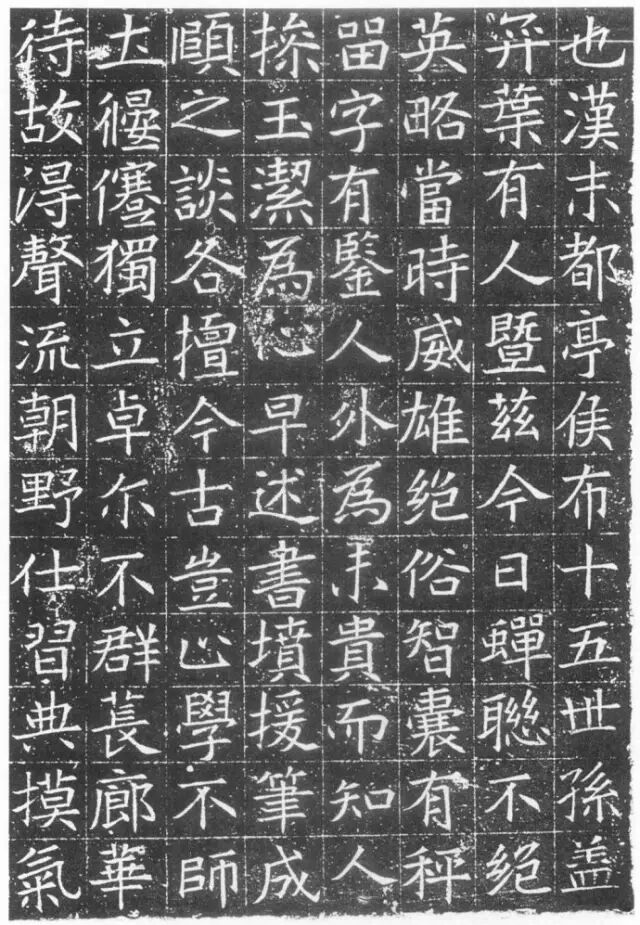 也漢末都亭侯布十五世孫盖
弈葉有人暨茲今日蟬聮不絕
英略當時威雄絕俗智囊有秤
畱字有鑒人外為末貴而知人
摻玉潔為心早述書墳援筆成
頥之談各擅今古豈止學不師
士偃蹇獨立卓尒不群萇廊華
待故淂聲流朝野仕習典摸氣